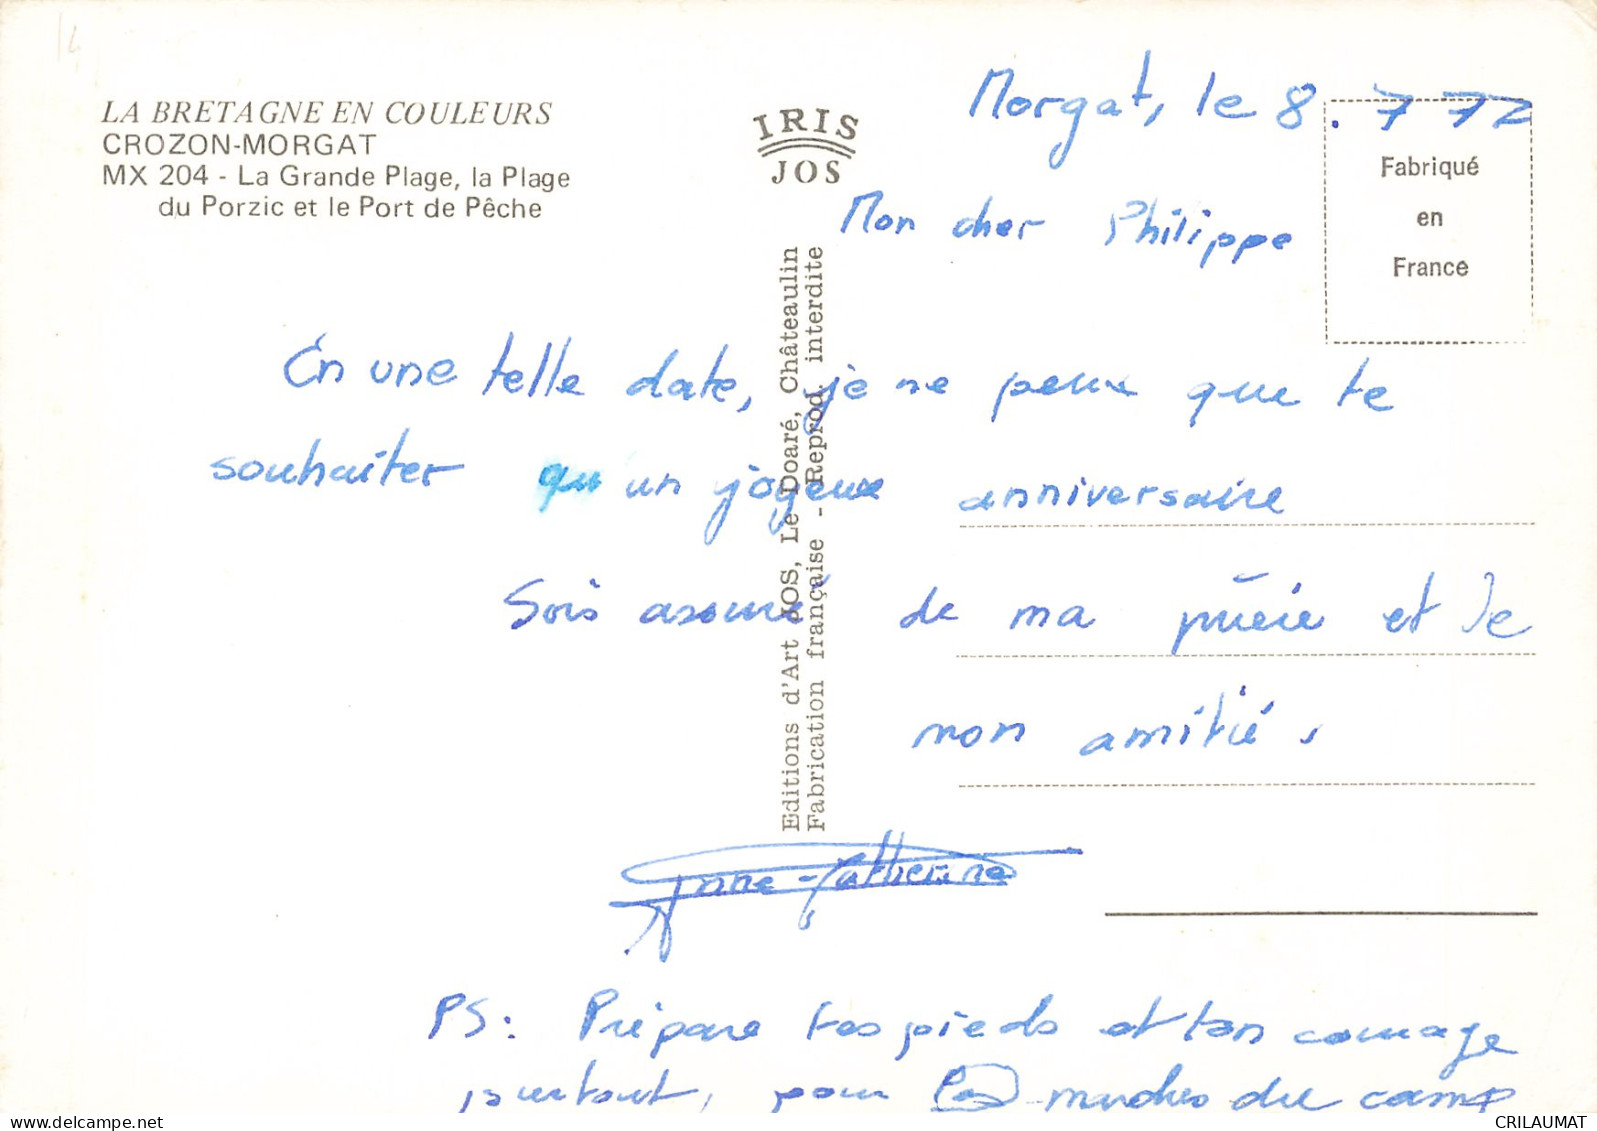 14
LA BRETAGNE EN COULEURS
CROZON-MORGAT
MX 204 - La Grande Plage, la Plage
du Porzic et le Port de Pêche
IRIS
JOS
Editions d'Art JOS, Le Doaré, Châteaulin
Fabrication française - Reprod. interdite
Fabriqué
en
France
Morgat, le 8.7 72
Mon cher Philippe
En une telle date, je ne peux que te
souhaiter qu'un joyeux anniversaire
Sois assuré de ma prière et de
mon amitié.
Anne-Catherine
PS: Prépare tes pieds et ton courage
surtout, pour les marches du camp
delcampe.net
CRILAUMAT